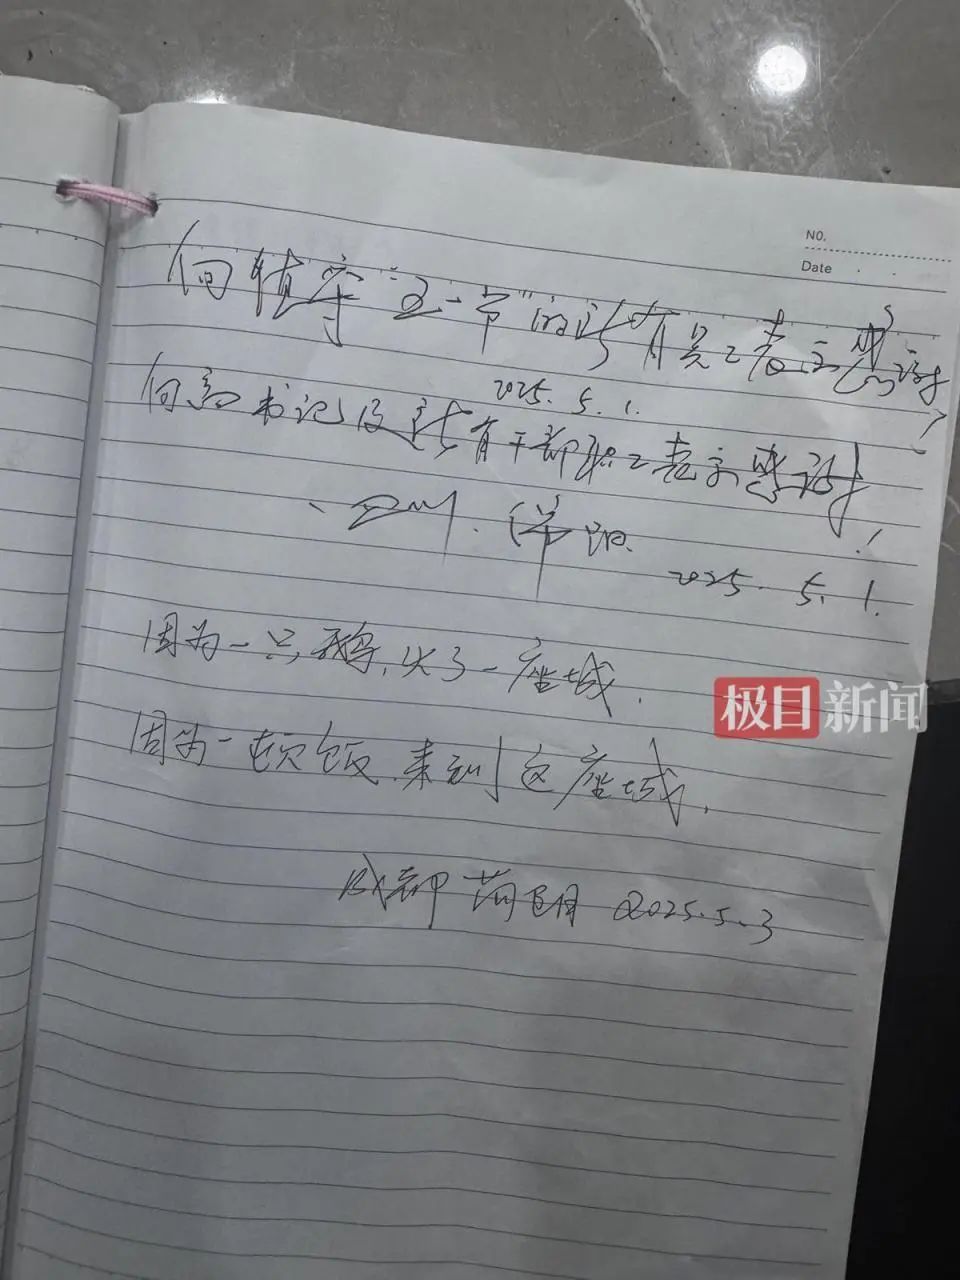 NO.
Date
向值守"五一节"的所有员工表示感谢
2025.5.1.
向 书记及所有干部职工表示感谢!
四川.
2025.5.1.
因为一只鹅,火了一座城.
因为一顿饭,来到这座城.
成都 2025.5.3
极目新闻